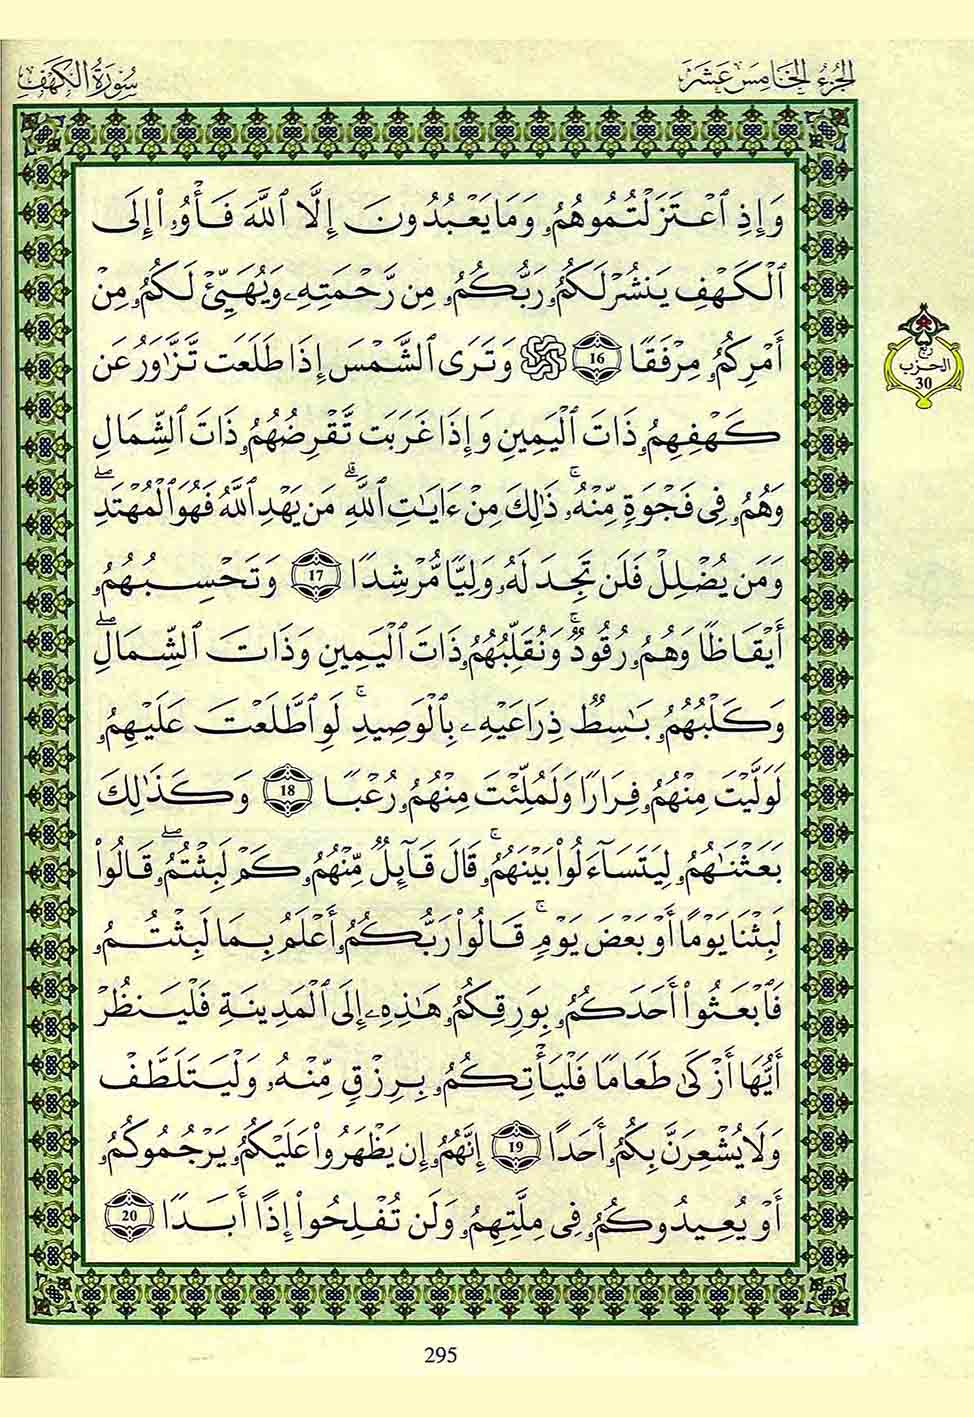 الجزء الخامس عشر
سورة الكهف
وَإِذِ ٱعْتَزَلْتُمُوهُمُۥ وَمَا يَعْبُدُونَ إِلَّا ٱللَّهَ فَأْوُۥٓا۟ إِلَى
ٱلْكَهْفِ يَنشُرْ لَكُمُۥ رَبُّكُمُۥ مِن رَّحْمَتِهِۦ وَيُهَيِّئْ لَكُمُۥ مِنْ
أَمْرِكُمُۥ مِرْفَقًا 16 ۞ وَتَرَى ٱلشَّمْسَ إِذَا طَلَعَت تَّزَّٰوَرُ عَن
كَهْفِهِمُۥ ذَاتَ ٱلْيَمِينِ وَإِذَا غَرَبَت تَّقْرِضُهُمُۥ ذَاتَ ٱلشِّمَالِ
وَهُمُۥ فِى فَجْوَةٍ مِّنْهُۥ ۚ ذَٰلِكَ مِنْ ءَايَٰتِ ٱللَّهِ ۗ مَن يَهْدِ ٱللَّهُ فَهُوَ ٱلْمُهْتَدِ ۖ
وَمَن يُضْلِلْ فَلَن تَجِدَ لَهُۥ وَلِيًّا مُّرْشِدًا 17 وَتَحْسِبُهُمُۥ
أَيْقَاظًا وَهُمُۥ رُقُودٌ ۚ وَنُقَلِّبُهُمُۥ ذَاتَ ٱلْيَمِينِ وَذَاتَ ٱلشِّمَالِ ۖ
وَكَلْبُهُمُۥ بَٰسِطٌ ذِرَاعَيْهِۦ بِٱلْوَصِيدِ ۚ لَوِ ٱطَّلَعْتَ عَلَيْهِمُۥ
لَوَلَّيْتَ مِنْهُمُۥ فِرَارًا وَلَمُلِّئْتَ مِنْهُمُۥ رُعْبًا 18 وَكَذَٰلِكَ
بَعَثْنَٰهُمُۥ لِيَتَسَآءَلُوا۟ بَيْنَهُمُۥ ۚ قَالَ قَآئِلٌ مِّنْهُمُۥ كَمْ لَبِثْتُمُۥ ۖ قَالُوا۟
لَبِثْنَا يَوْمًا أَوْ بَعْضَ يَوْمٍ ۚ قَالُوا۟ رَبُّكُمُۥ أَعْلَمُ بِمَا لَبِثْتُمُۥ
فَٱبْعَثُوٓا۟ أَحَدَكُمُۥ بِوَرِقِكُمُۥ هَٰذِهِۦ إِلَى ٱلْمَدِينَةِ فَلْيَنظُرْ
أَيُّهَا أَزْكَىٰ طَعَامًا فَلْيَأْتِكُمُۥ بِرِزْقٍ مِّنْهُۥ وَلْيَتَلَطَّفْ
وَلَا يُشْعِرَنَّ بِكُمُۥ أَحَدًا 19 إِنَّهُمُۥ إِن يَظْهَرُوا۟ عَلَيْكُمُۥ يَرْجُمُوكُمُۥ
أَوْ يُعِيدُوكُمُۥ فِى مِلَّتِهِمُۥ وَلَن تُفْلِحُوٓا۟ إِذًا أَبَدًا 20
ربع
الحزب
30
295